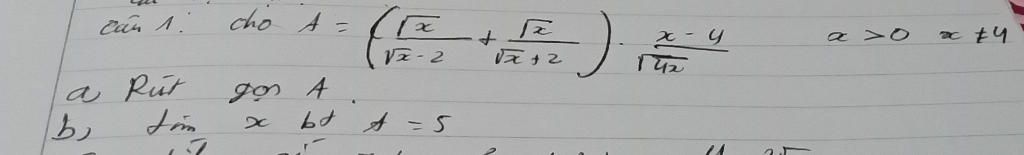 câu 1: cho A = (√x/(√x-2) + √x/(√x+2)) . (x-4)/√4x x>0 x≠4
a, Rút gọn A.
b, tìm x bt A = 5